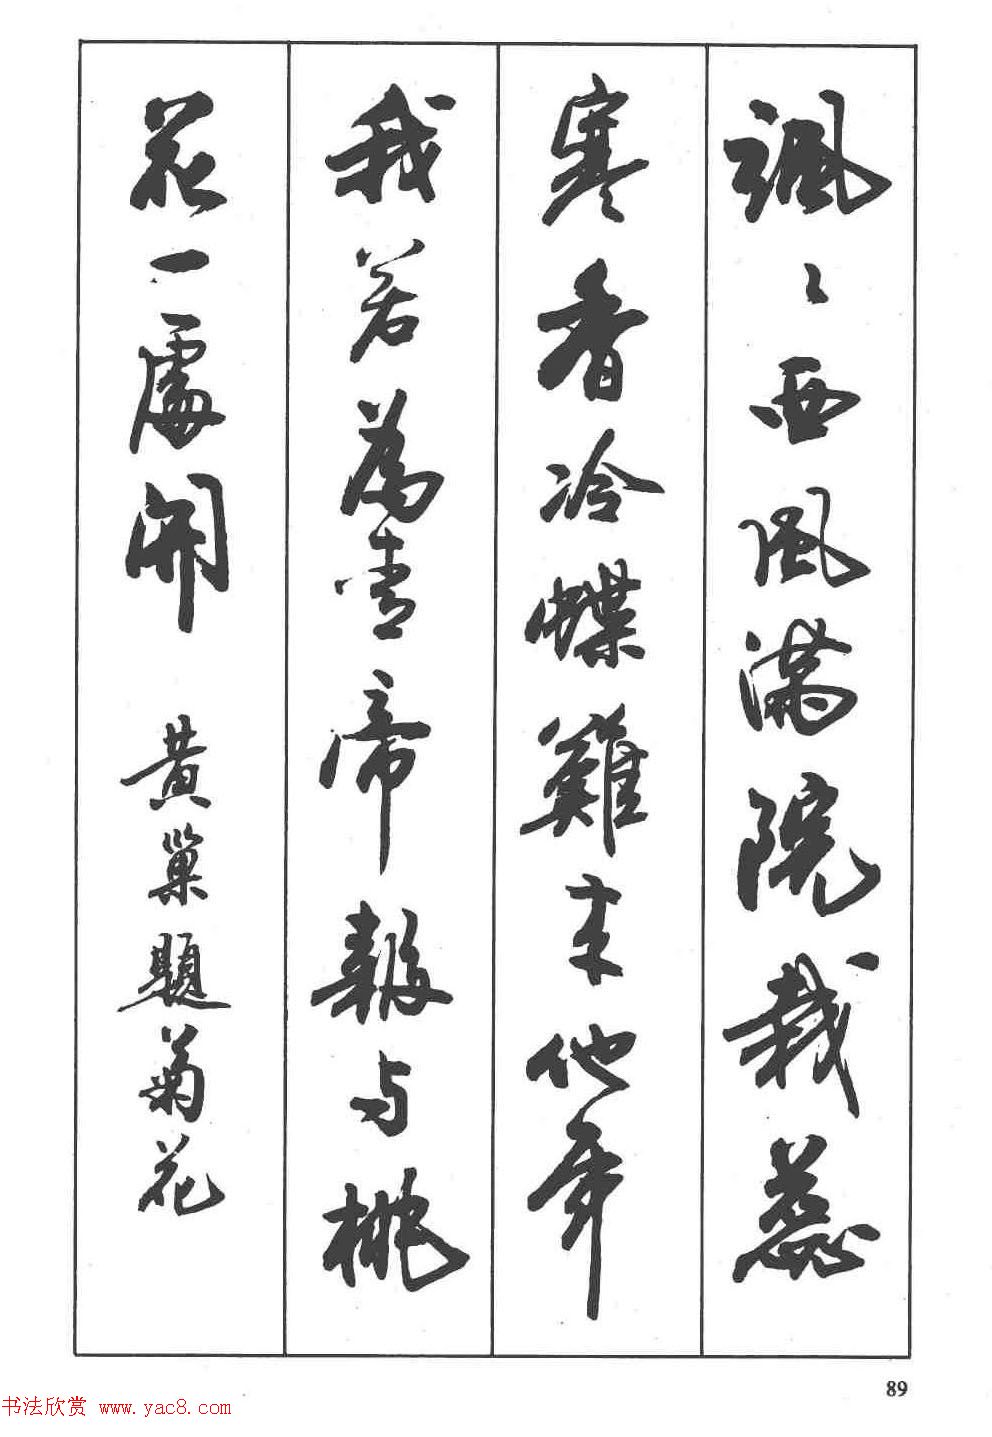 飒〻西风满院栽蕊
寒香冷蝶難来他年
我若為青帝報与桃
花一處開 黄巢題菊花
89
书法欣赏 www.yac8.com